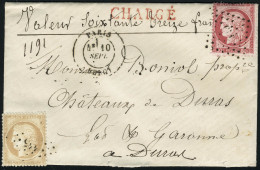 CHARGÉ
Valeur Soixante Treize fran
1191
PARIS
10
SEPT
Monsieur Boniol prop
Châteaux de Duras
Lot & Garonne
a Duras